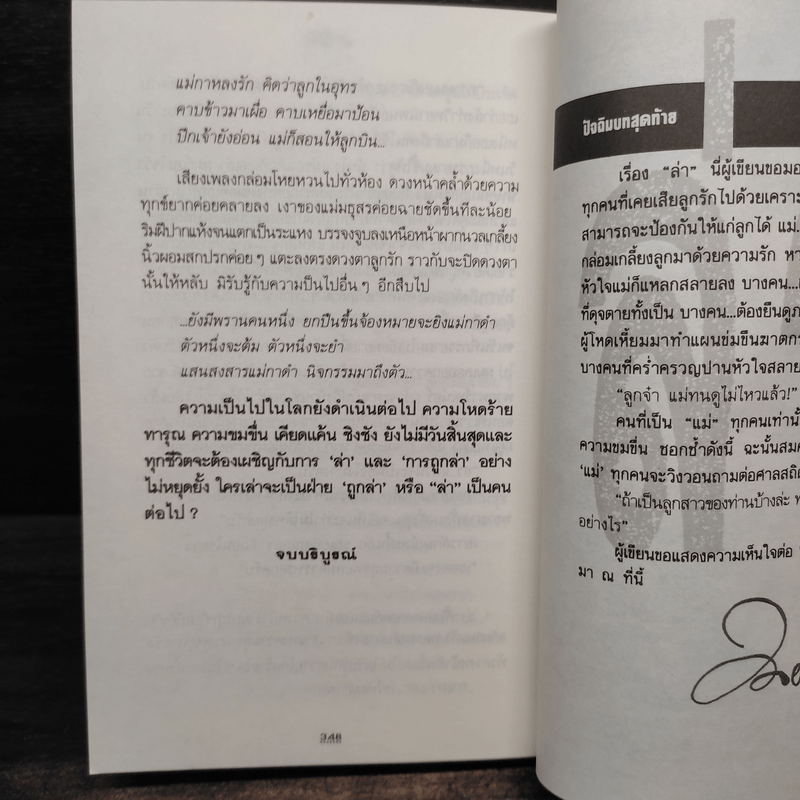 แม่กาหลงรัก คิดว่าลูกในอุทร
คาบข้าวมาเผื่อ คาบเหยื่อมาป้อน
ปีกเจ้ายังอ่อน แม่ก็สอนให้ลูกบิน...
เสียงเพลงกล่อมโหยหวนไปทั่วห้อง ดวงหน้าคล้ำด้วยความ
ทุกข์ยากค่อยคลายลง เงาของแม่มธุสรค่อยฉายชัดขึ้นทีละน้อย
ริมฝีปากแห้งจนแตกเป็นระแหง บรรจงจูบลงเหนือหน้าผากนวลเกลี้ยง
นิ้วผอมสกปรกค่อยๆ แตะลงตรงดวงตาลูกรัก ราวกับจะปิดดวงตา
นั้นให้หลับ มิรับรู้กับความเป็นไปอื่นๆ อีกสืบไป
...ยังมีพรานคนหนึ่ง ยกปืนขึ้นจ้องหมายจะยิงแม่กาดำ
ตัวหนึ่งจะต้ม ตัวหนึ่งจะยำ
แสนสงสารแม่กาดำ นิจกรรมมาถึงตัว...
ความเป็นไปในโลกยังดำเนินต่อไป ความโหดร้าย
ทารุณ ความขมขื่น เคียดแค้น ชิงชัง ยังไม่มีวันสิ้นสุดและ
ทุกชีวิตจะต้องเผชิญกับการ 'ล่า' และ 'การถูกล่า' อย่าง
ไม่หยุดยั้ง ใครเล่าจะเป็นฝ่าย 'ถูกล่า' หรือ "ล่า" เป็นคน
ต่อไป ?
จบบริบูรณ์
346
ปัจฉิมบทสุดท้าย
เรื่อง "ล่า" นี่ผู้เขียนขอมอ
ทุกคนที่เคยเสียลูกรักไปด้วยเคราะ
สามารถจะป้องกันให้แก่ลูกได้ แม่.
กล่อมเกลี้ยงลูกมาด้วยความรัก หา
หัวใจแม่ก็แหลกสลายลง บางคน...
ที่ดุจตายทั้งเป็น บางคน...ต้องยืนดูภ
ผู้โหดเหี้ยมมาทำแผนข่มขืนฆาตกร
บางคนที่คร่ำครวญปานหัวใจสลาย
"ลูกจ๋า แม่ทนดูไม่ไหวแล้ว!"
คนที่เป็น "แม่" ทุกคนเท่านั้
ความขมขื่น ชอกช้ำดังนี้ ฉะนั้นสม
'แม่' ทุกคนจะวิงวอนถามต่อศาลสถิต
"ถ้าเป็นลูกสาวของท่านบ้างล่ะ ท
อย่างไร"
ผู้เขียนขอแสดงความเห็นใจต่อ
มา ณ ที่นี้